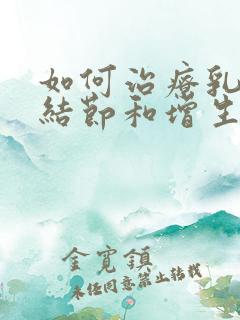 如何治療乳
結節和增生
金寬鎮
未經同意禁止轉載